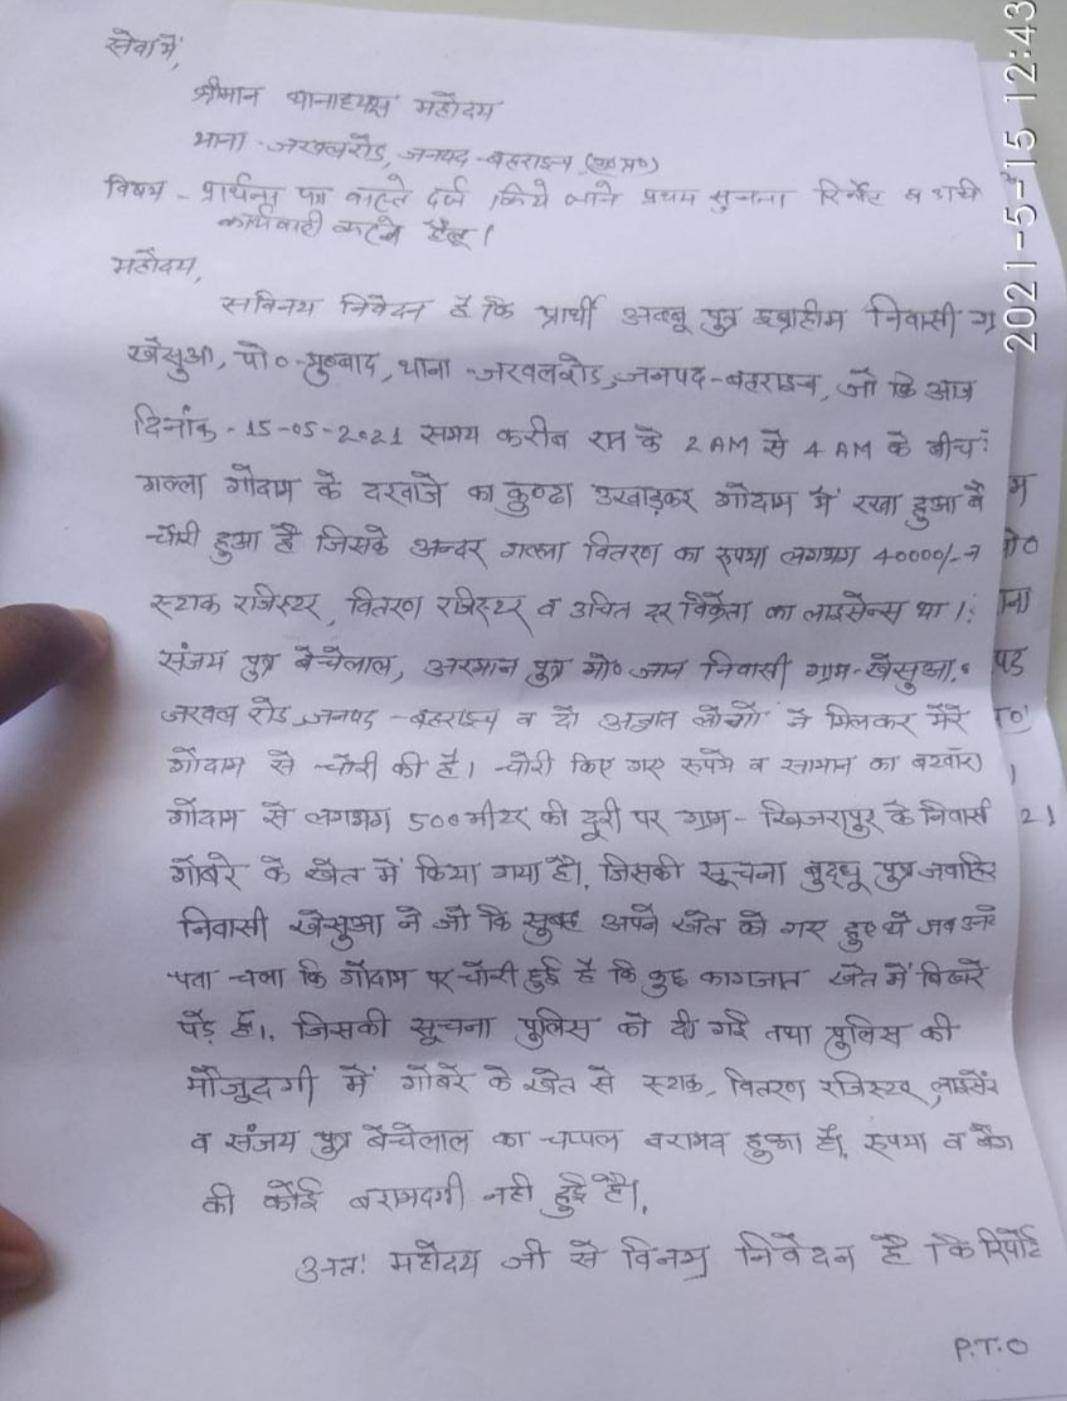 सेवा में,
श्रीमान थानाध्यक्ष महोदय
थाना - जरवलरोड, जनपद - बहराइच (उ०प्र०)
विषय - प्रार्थना पत्र वास्ते दर्ज किये जाने प्रथम सूचना रिर्पोट व
कार्यवाही करने हेतु।
महोदय,
सविनय निवेदन है कि प्रार्थी अब्बू पुत्र इब्राहीम निवासी ग्र
खेसुआ, पो०- , थाना - जरवलरोड, जनपद - बहराइच, जो कि आज
दिनांक - 15-05-2021 समय करीब रात के 2 AM से 4 AM के बीच
गल्ला गोदाम के दरवाजे का कुण्ढा उखाड़कर गोदाम में रखा हुआ बै
चोरी हुआ है जिसके अन्दर गल्ला वितरण का रूपया लगभग 40000/-
स्टाक रजिस्टर, वितरण रजिस्टर व उचित दर विक्रेता का लाइसेन्स था।
संजय पुत्र बेचेलाल, अरमान पुत्र मो० जान निवासी ग्राम - खेसुआ,
जरवल रोड, जनपद - बहराइच व दो अज्ञात लोगों ने मिलकर मेरे
गोदाम से चोरी की है। चोरी किए गए रूपये व सामान का
गोदाम से लगभग 500 मीटर की दूरी पर ग्राम - खिजरापुर के निवासी
गोबरे के खेत में किया गया है। जिसकी सूचना बुद्धू पुत्र जवाहिर
निवासी खेसुआ ने जो कि सुबह अपने खेत को गए हुए थे जब उन्हे
पता चला कि गोदाम पर चोरी हुई है कि कुछ कागजात खेत में बिखरे
पड़े हैं। जिसकी सूचना पुलिस को दी गई तथा पुलिस की
मौजूदगी में गोबरे के खेत से स्टाक, वितरण रजिस्टर, लाइसेंस
व संजय पुत्र बेचेलाल का चप्पल बरामद हुआ है। रूपया व बैग
की कोई बरामदगी नही हुई है।
अतः महोदय जी से विनम्र निवेदन है कि रिपोर्ट
P.T.O
2021-5-15 12:43